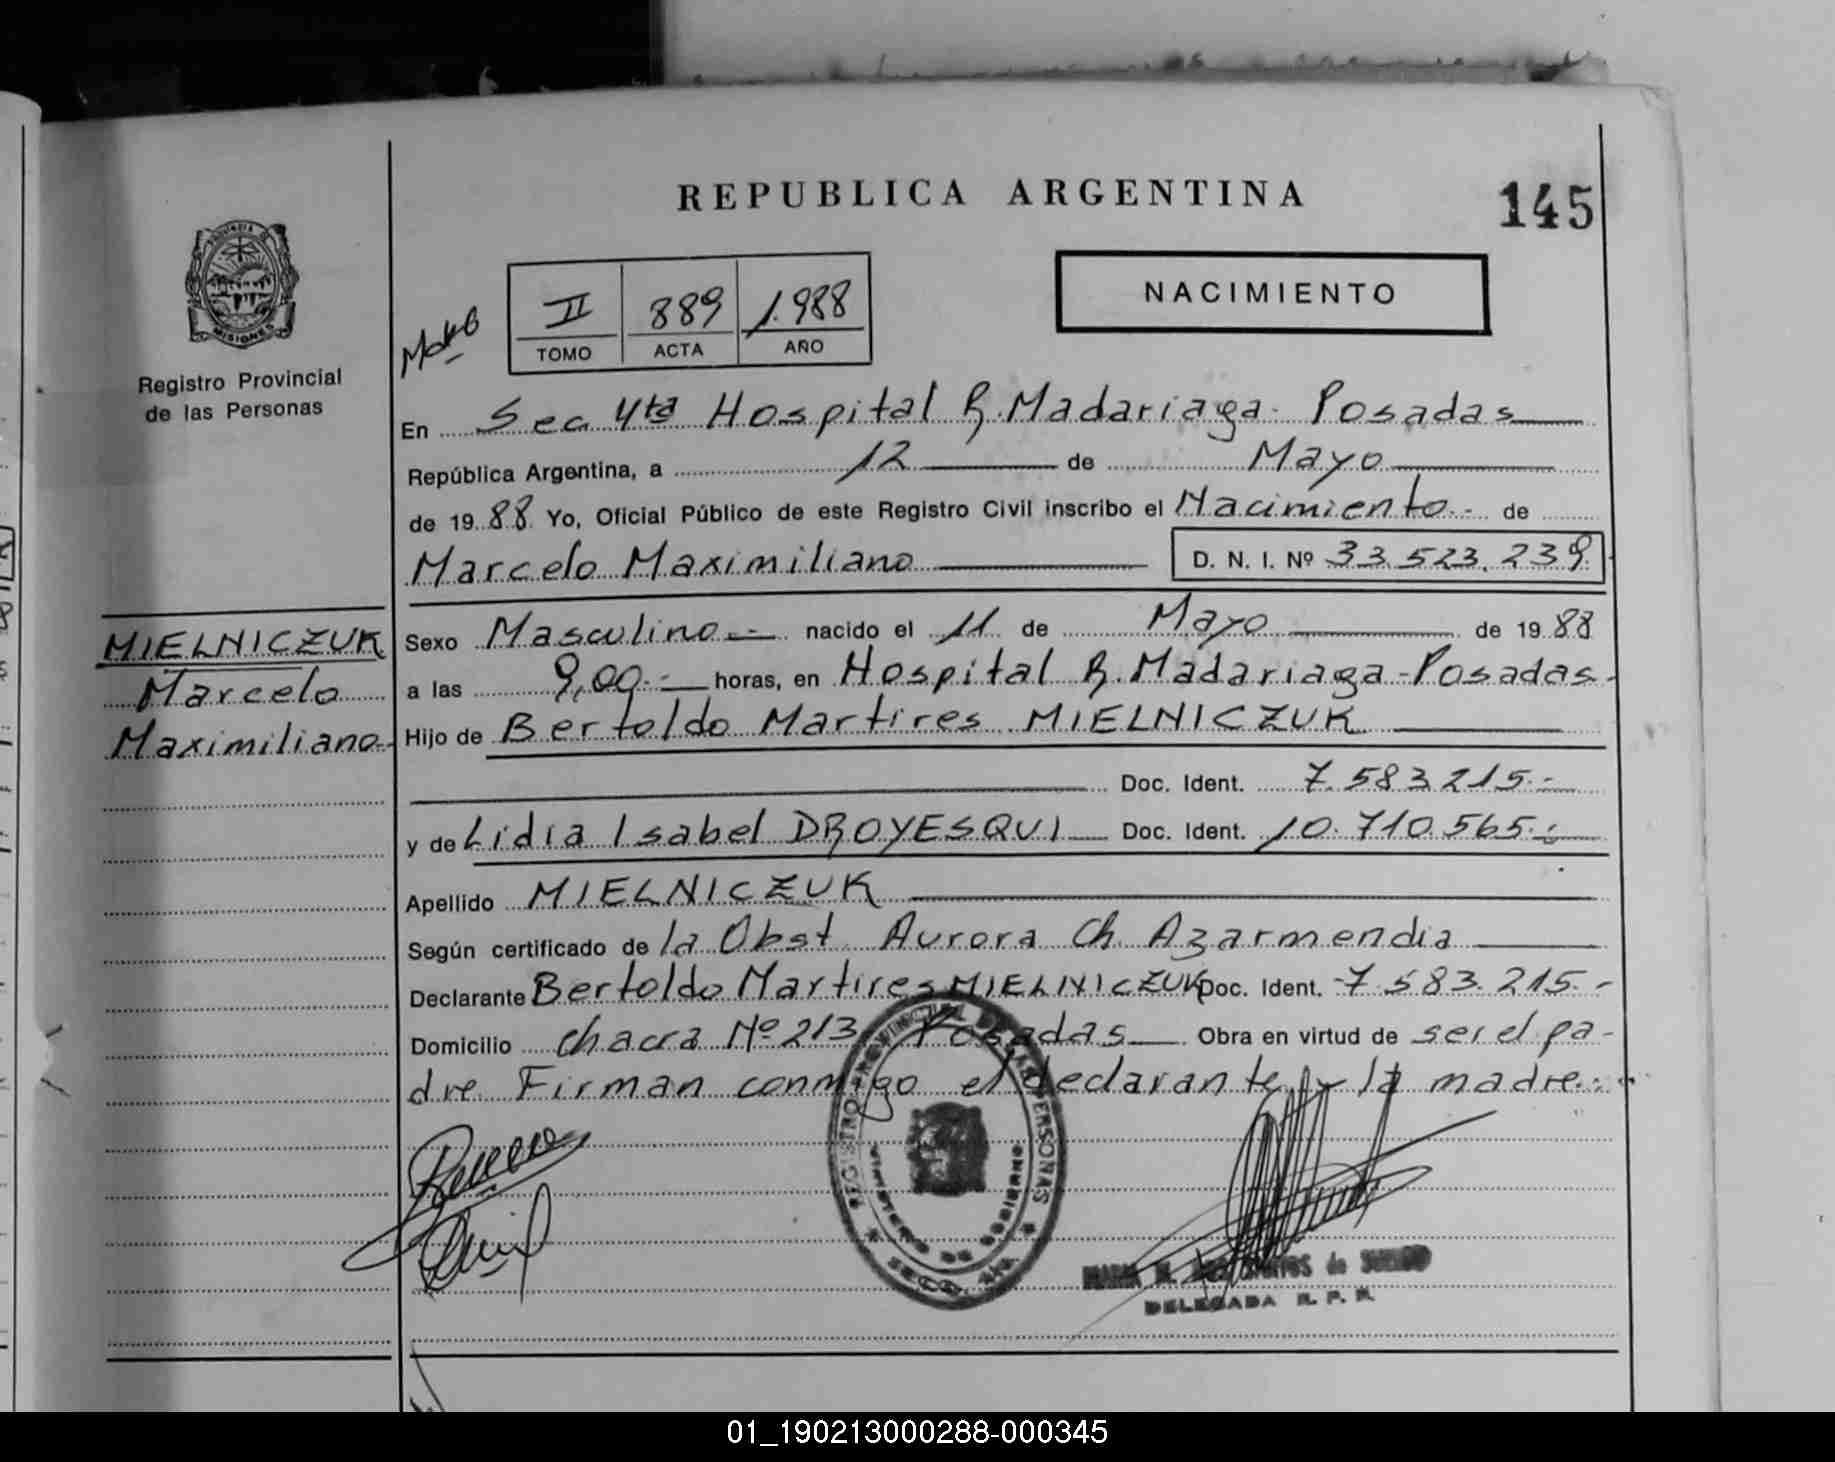 REPUBLICA ARGENTINA
145
NACIMIENTO
II 889 1.988
TOMO ACTA AÑO
MISIONES
Registro Provincial
de las Personas
En Sec 4ta Hospital R. Madariaga - Posadas
República Argentina, a 12 de Mayo
de 19 88 Yo, Oficial Público de este Registro Civil inscribo el Nacimiento.- de
Marcelo Maximiliano D. N. I. Nº 33.523.239
MIELNICZUK
Marcelo
Maximiliano
Sexo Masculino.- nacido el 11 de Mayo de 19 88
a las 9,00.- horas, en Hospital R. Madariaga - Posadas.
Hijo de Bertoldo Martires MIELNICZUK
Doc. Ident. 7.583.215.-
y de Lidia Isabel DROYESQUI Doc. Ident. 10.710.565.-
Apellido MIELNICZUK
Según certificado de la Obst Aurora Ch Azarmendia
Declarante Bertoldo Martires MIELNICZUK Doc. Ident. 7.583.215.-
Domicilio Chacra Nº 213 Posadas Obra en virtud de ser el pa-
dre. Firman conmigo el declarante y la madre.-
REGISTRO PROVINCIAL DE LAS PERSONAS
MINISTERIO DE GOBIERNO
DELEGADA R. P. P.
01_190213000288-000345